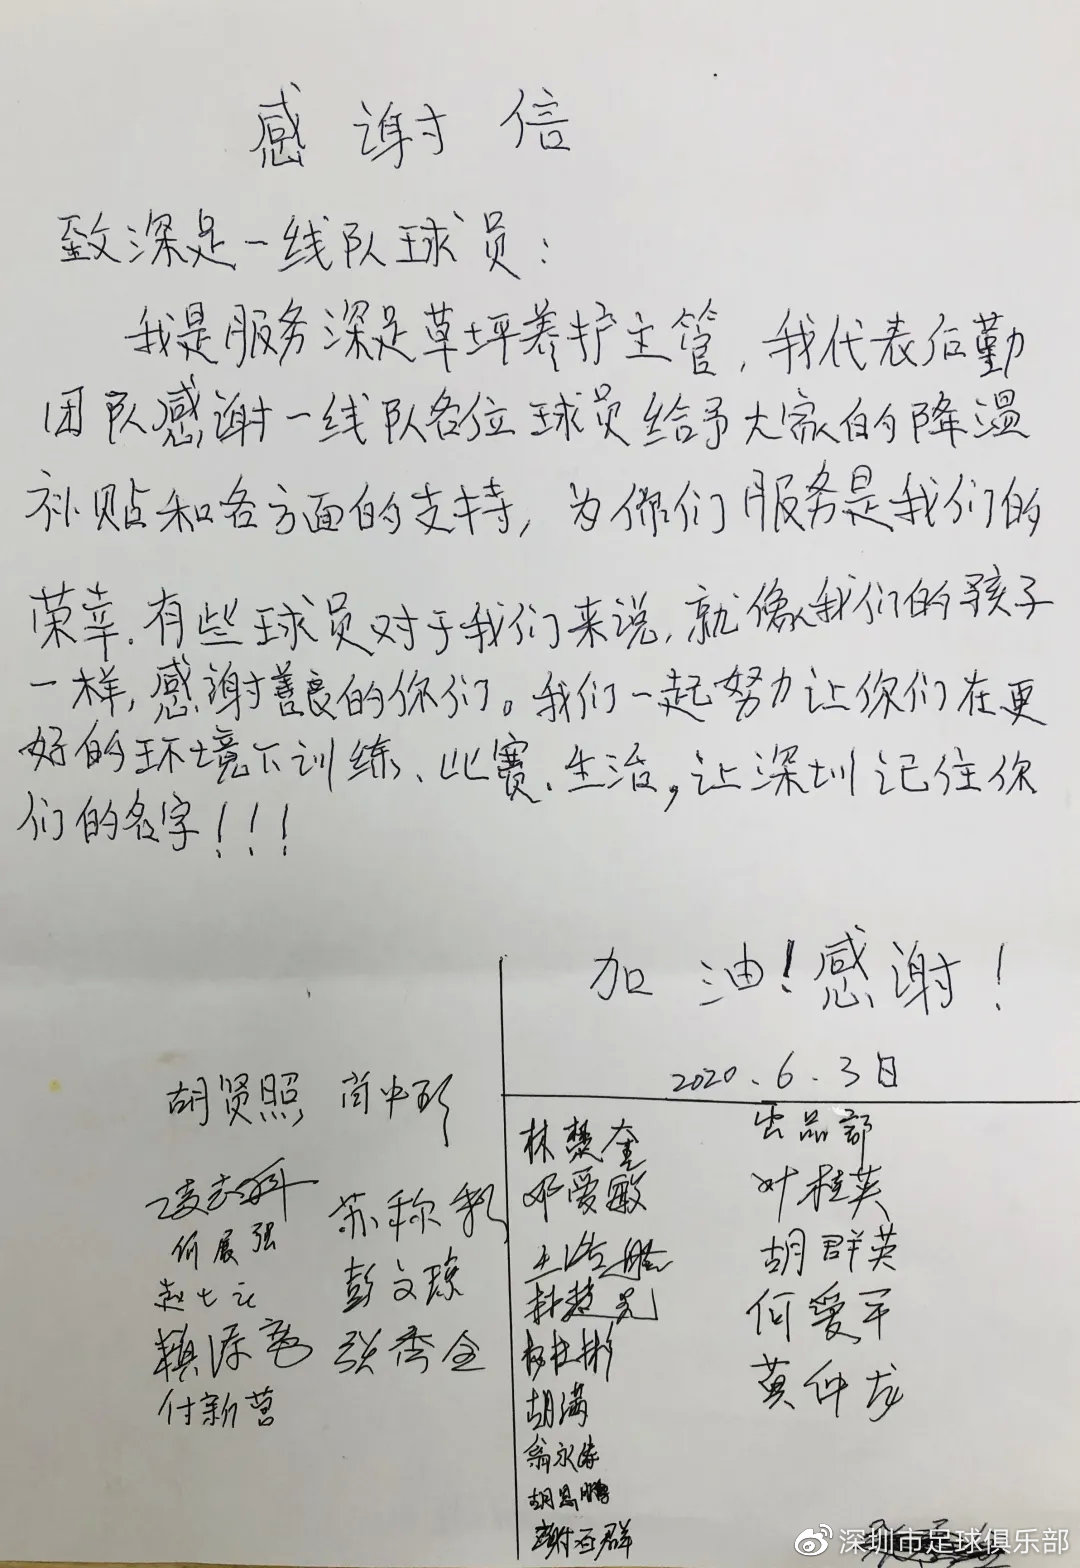 感谢信
致深足一线队球员：
我是服务深足草坪养护主管，我代表后勤
团队感谢一线队各位球员给予大家的降温
补贴和各方面的支持，为你们服务是我们的
荣幸．有些球员对于我们来说，就像我们的孩子
一样，感谢善良的你们。我们一起努力让你们在更
好的环境下训练、比赛、生活，让深圳记住你
们的名字！！！
加油！感谢！
2020.6.3日
胡贤照
何展强
付新营
彭文琼
张秀全
林楚奎
邓爱敏
胡满
出品部
叶桂英
胡群英
何爱平
黄仲龙
深圳市足球俱乐部